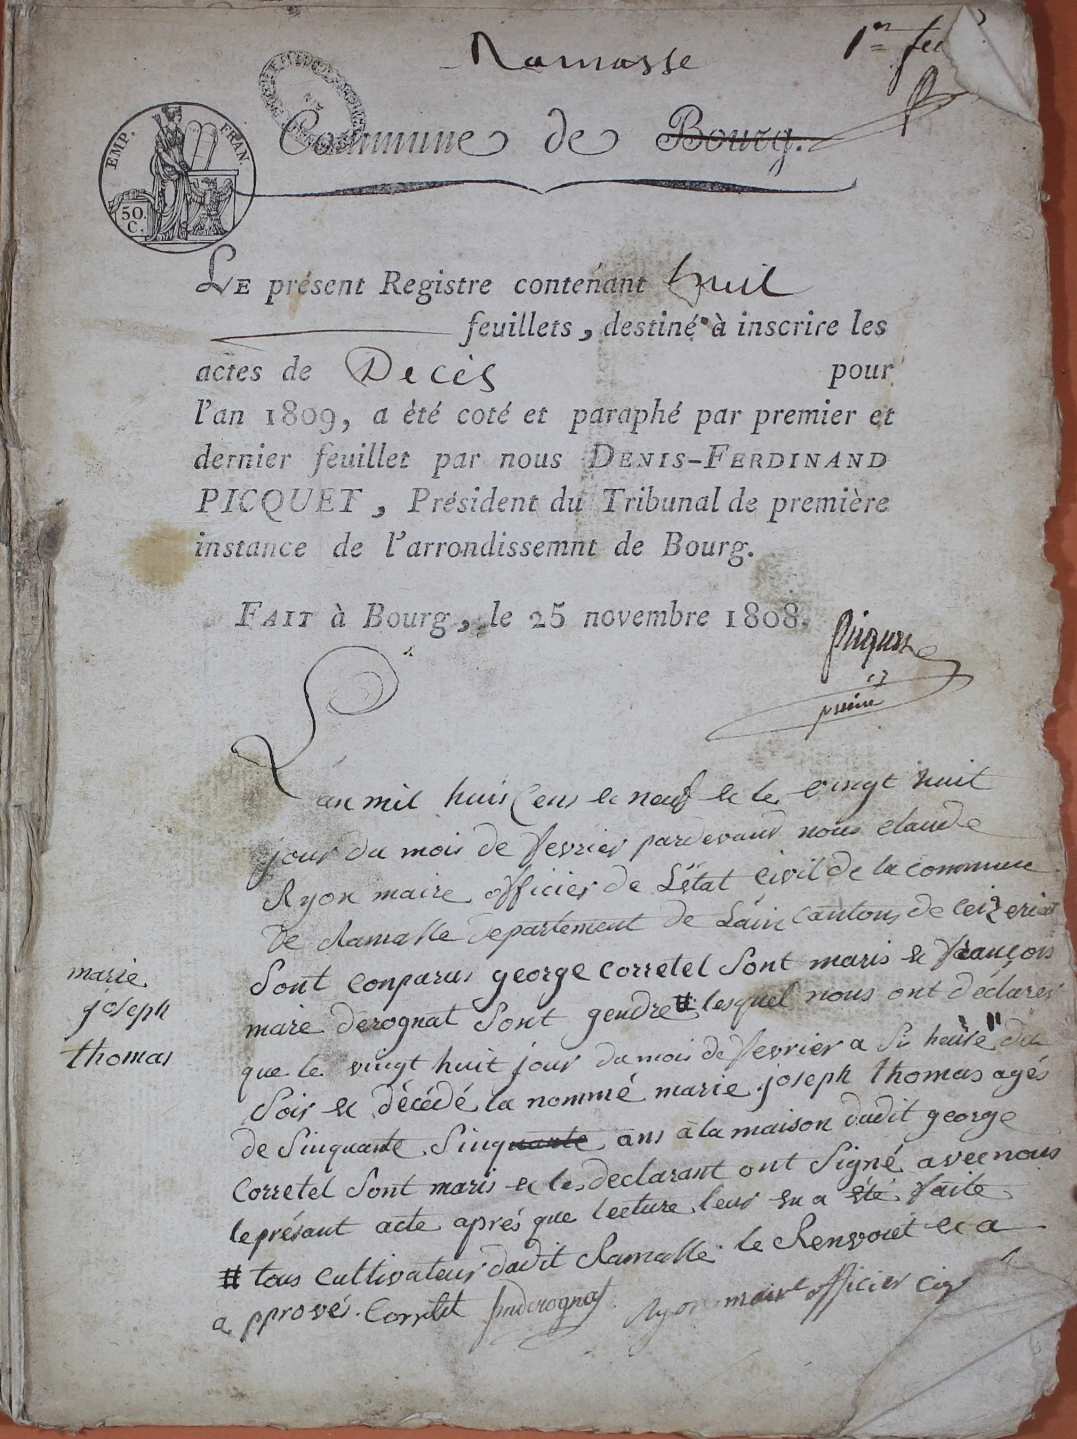 Ramasse
1er feu
Commune de Bourg.
EMP. FRAN.
50.
C.
LE présent Registre contenant huit
feuillets, destiné à inscrire les
actes de Décès pour
l'an 1809, a été coté et paraphé par premier et
dernier feuillet par nous DENIS-FERDINAND
PICQUET, Président du Tribunal de première
instance de l'arrondissemnt de Bourg.
FAIT à Bourg, le 25 novembre 1808.
Picquet
L'an mil huis Cens et neuf et le vingt huit
jour du mois de fevrier pardevant nous claude
Ryon maire officier de L'état Civil de la commune
de Ramasse Departement de Lain cantons de Ceizeriat
Sont conparus george corretel Sont maris et françois
marie
joseph
thomas
mare derognat Sont gendre # lesquel nous ont déclares
que le vingt huit jour du mois de fevrier a Si heure du
Soir et décédé la nommé marie joseph thomas agés
de Sinquante Sinquante ans à la maison dudit george
Corretel Sont maris et les declarant ont Signé avec nous
le présant acte après que lecture leur en a été faite
# tous cultivateur dudit Ramasse le Renvoiet et a
a pprovés. Corretel fmderognat Ryon maire officier